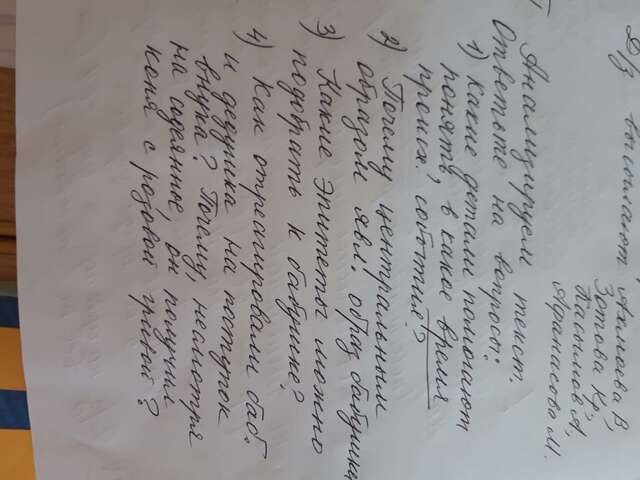 Д/з высылают Акимова В,
Зотова Кр.,
Касимов А,
Афанасова М.
Анализируем текст.
Ответьте на вопросы:
1) Какие детали помогают
понять, в какое время
происх. события?
2) Почему центральным
образом явл. образ бабушки
3) Какие эпитеты можно
подобрать к бабушке?
4) Как отреагировали баб.
и дедушка на поступок
внука? Почему, несмотря
на содеянное, он получил
коня с розовой гривой?